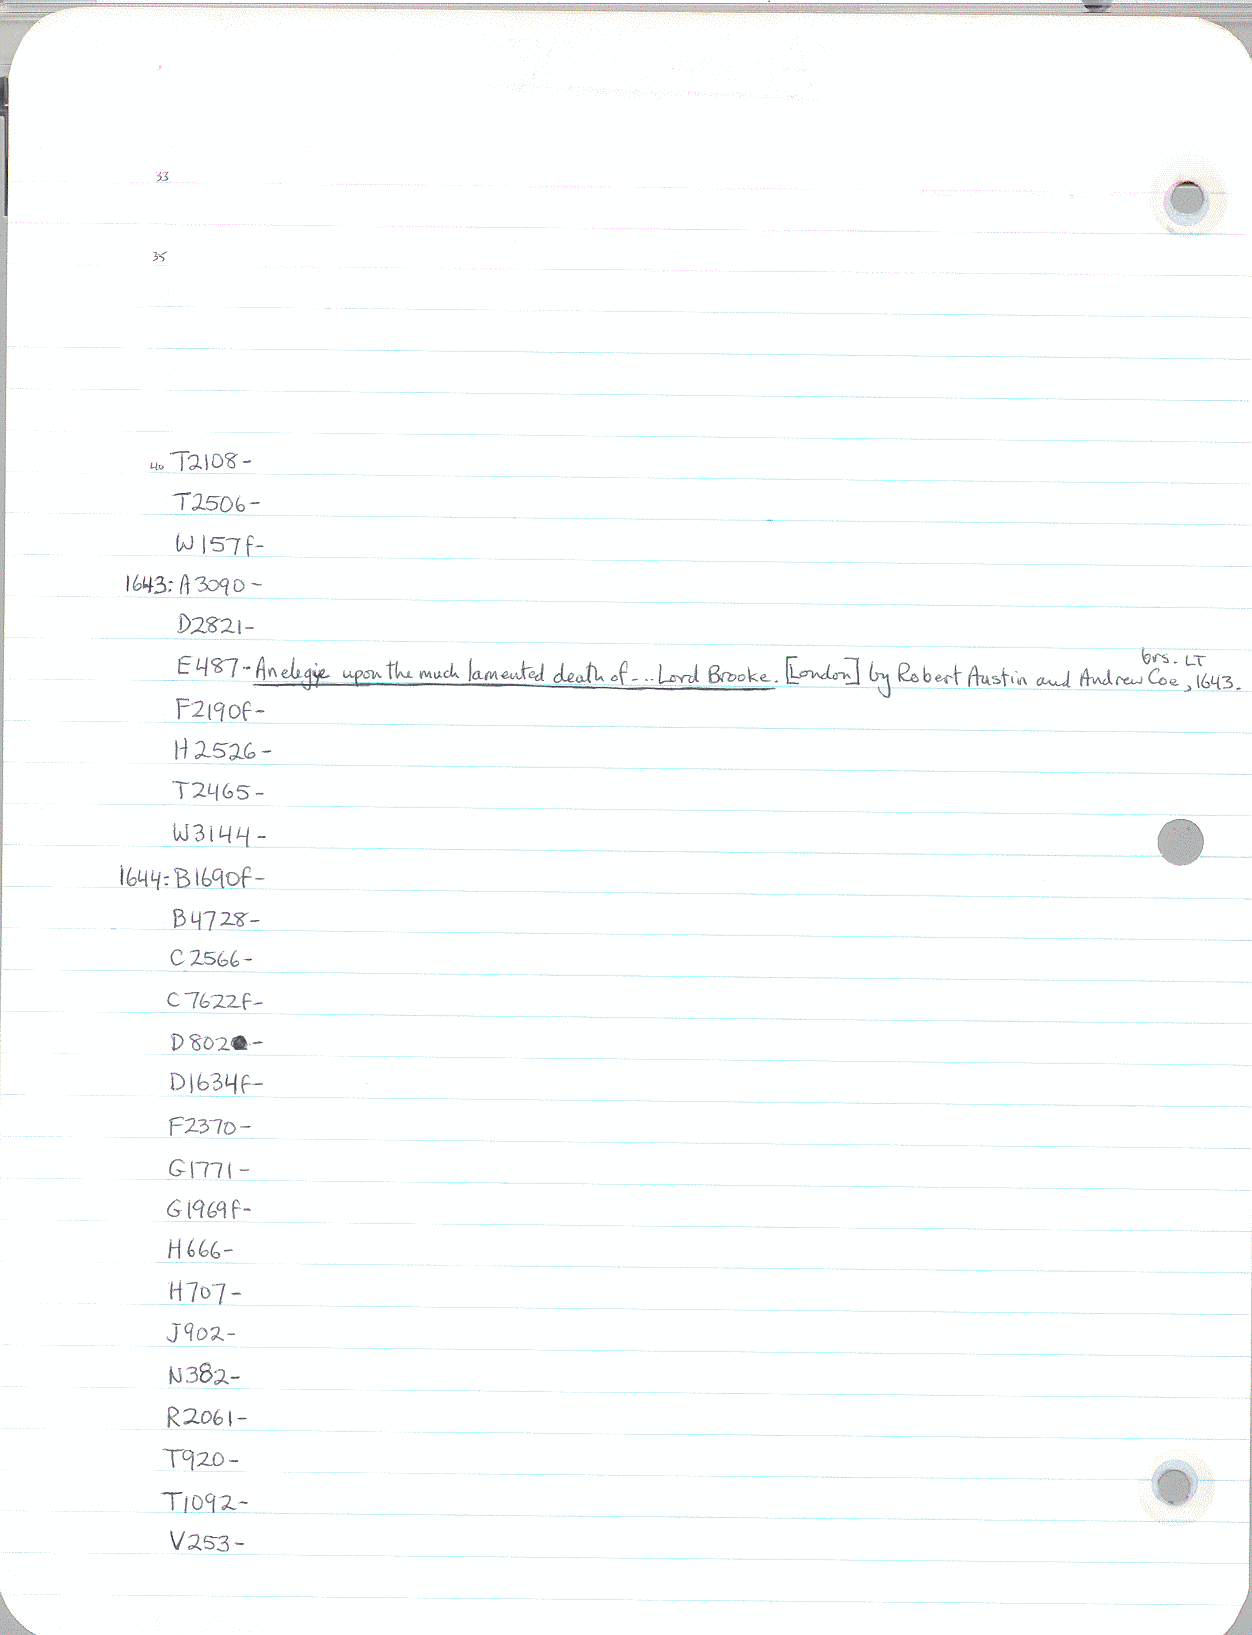 33
35
40 T2108-
T2506-
W157f-
1643: A3090-
D2821-
brs. LT
E487- An elegie upon the much lamented death of --.. Lord Brooke. [London] by Robert Austin and Andrew Coe, 1643.
F2190f-
H2526-
T2465-
W3144-
1644: B1690f-
B4728-
C2566-
C7622f-
D802 -
D1634f-
F2370-
G1771-
G1969f-
H666-
H707-
J902-
N382-
R2061-
T920-
T1092-
V253-